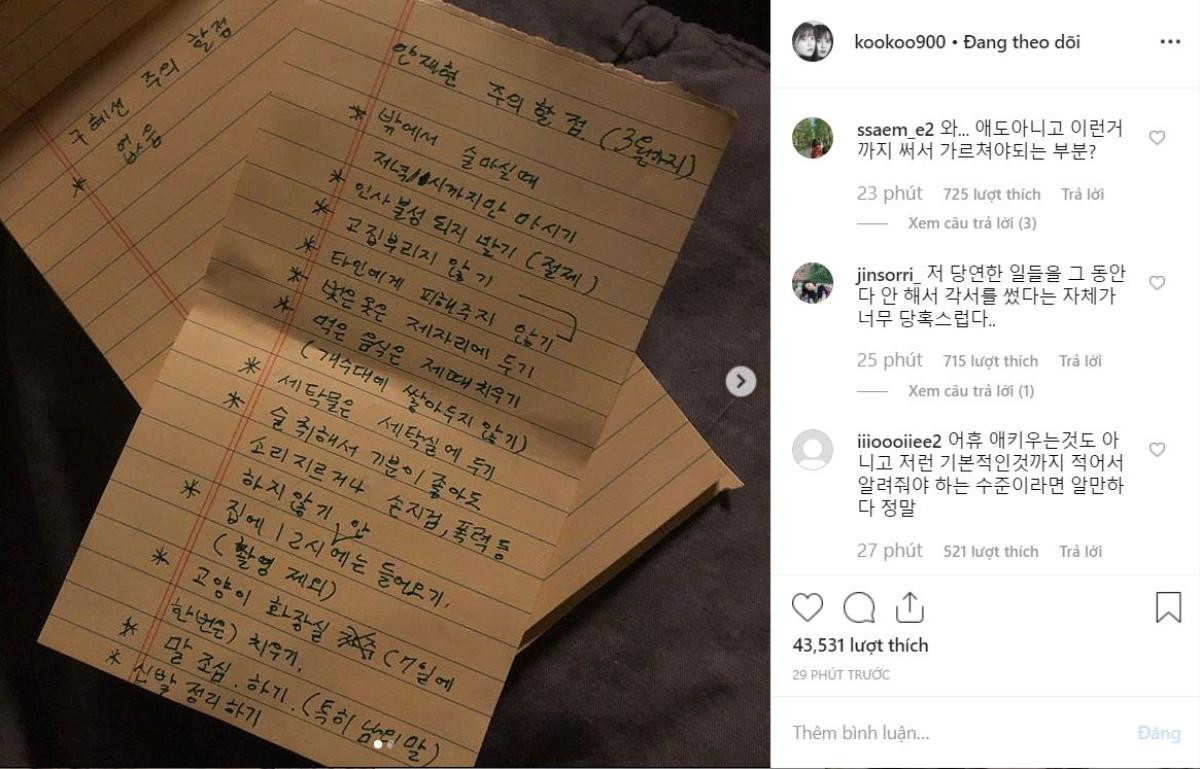 구혜선 주의 할점
* 없음
안재현 주의할점. (3월까지)
* 밖에서 술마실때
저녁 11시까지만 마시기
* 인사불성 되지 말기 (절제)
* 고집부리지 않기
* 타인에게 피해주지 않기
* 벗은 옷은 제자리에 두기
* 먹은 음식은 제때 치우기
(개수대에 쌓아두지 않기)
* 세탁물은 세탁실에 두기
* 술 취해서 기분이 좋아도
소리지르거나 손지검, 폭력 등
하지 않기
* 집에 12시 안에는 들어오기.
(촬영 제외)
* 고양이 화장실 (7일에
한번은) 치우기.
* 말 조심. 하기. (특히 남의 말)
* 신발 정리하기
kookoo900 • Đang theo dõi
ssaem_e2 와... 애도아니고 이런거
까지 써서 가르쳐야되는 부분?
23 phút 725 lượt thích Trả lời
Xem câu trả lời (3)
jinsorri_ 저 당연한 일들을 그 동안
다 안 해서 각서를 썼다는 자체가
너무 당혹스럽다..
25 phút 715 lượt thích Trả lời
Xem câu trả lời (1)
iiioooiiee2 어휴 애키우는것도 아
니고 저런 기본적인것까지 적어서
알려줘야 하는 수준이라면 알만하
다 정말
27 phút 521 lượt thích Trả lời
43,531 lượt thích
29 PHÚT TRƯỚC
Thêm bình luận...
Đăng